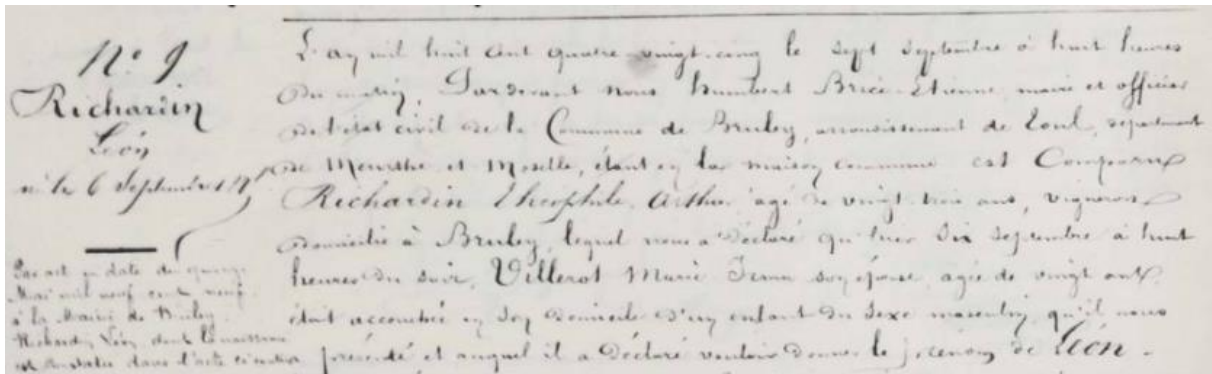 N° 9
Richardin
Léon
né le 6 Septembre
Par act en date du quinze
Mai mil neuf cent neuf
à la Mairie de Bruley
Richardin Léon, dont la naissance
est constatée dans l'acte ci-contre
L'an mil huit cent quatre-vingt-cinq le sept Septembre à huit heures
du matin, Pardevant nous Humbert Brice Etienne, maire et officier
de l'état civil de la Commune de Bruley, arrondissement de Toul, département
de Meurthe et Moselle, étant en la maison commune est Comparu
Richardin Théophile Arthur âgé de vingt-trois ans, vigneron
domicilié à Bruley, lequel nous a déclaré qu'hier six Septembre à huit
heures du soir, Villerot Marie son épouse, agée de vingt ans
était accouchée en son domicile d'un enfant du sexe masculin qu'il nous
présenté et auquel il a déclaré vouloir donner le prénom de Léon.